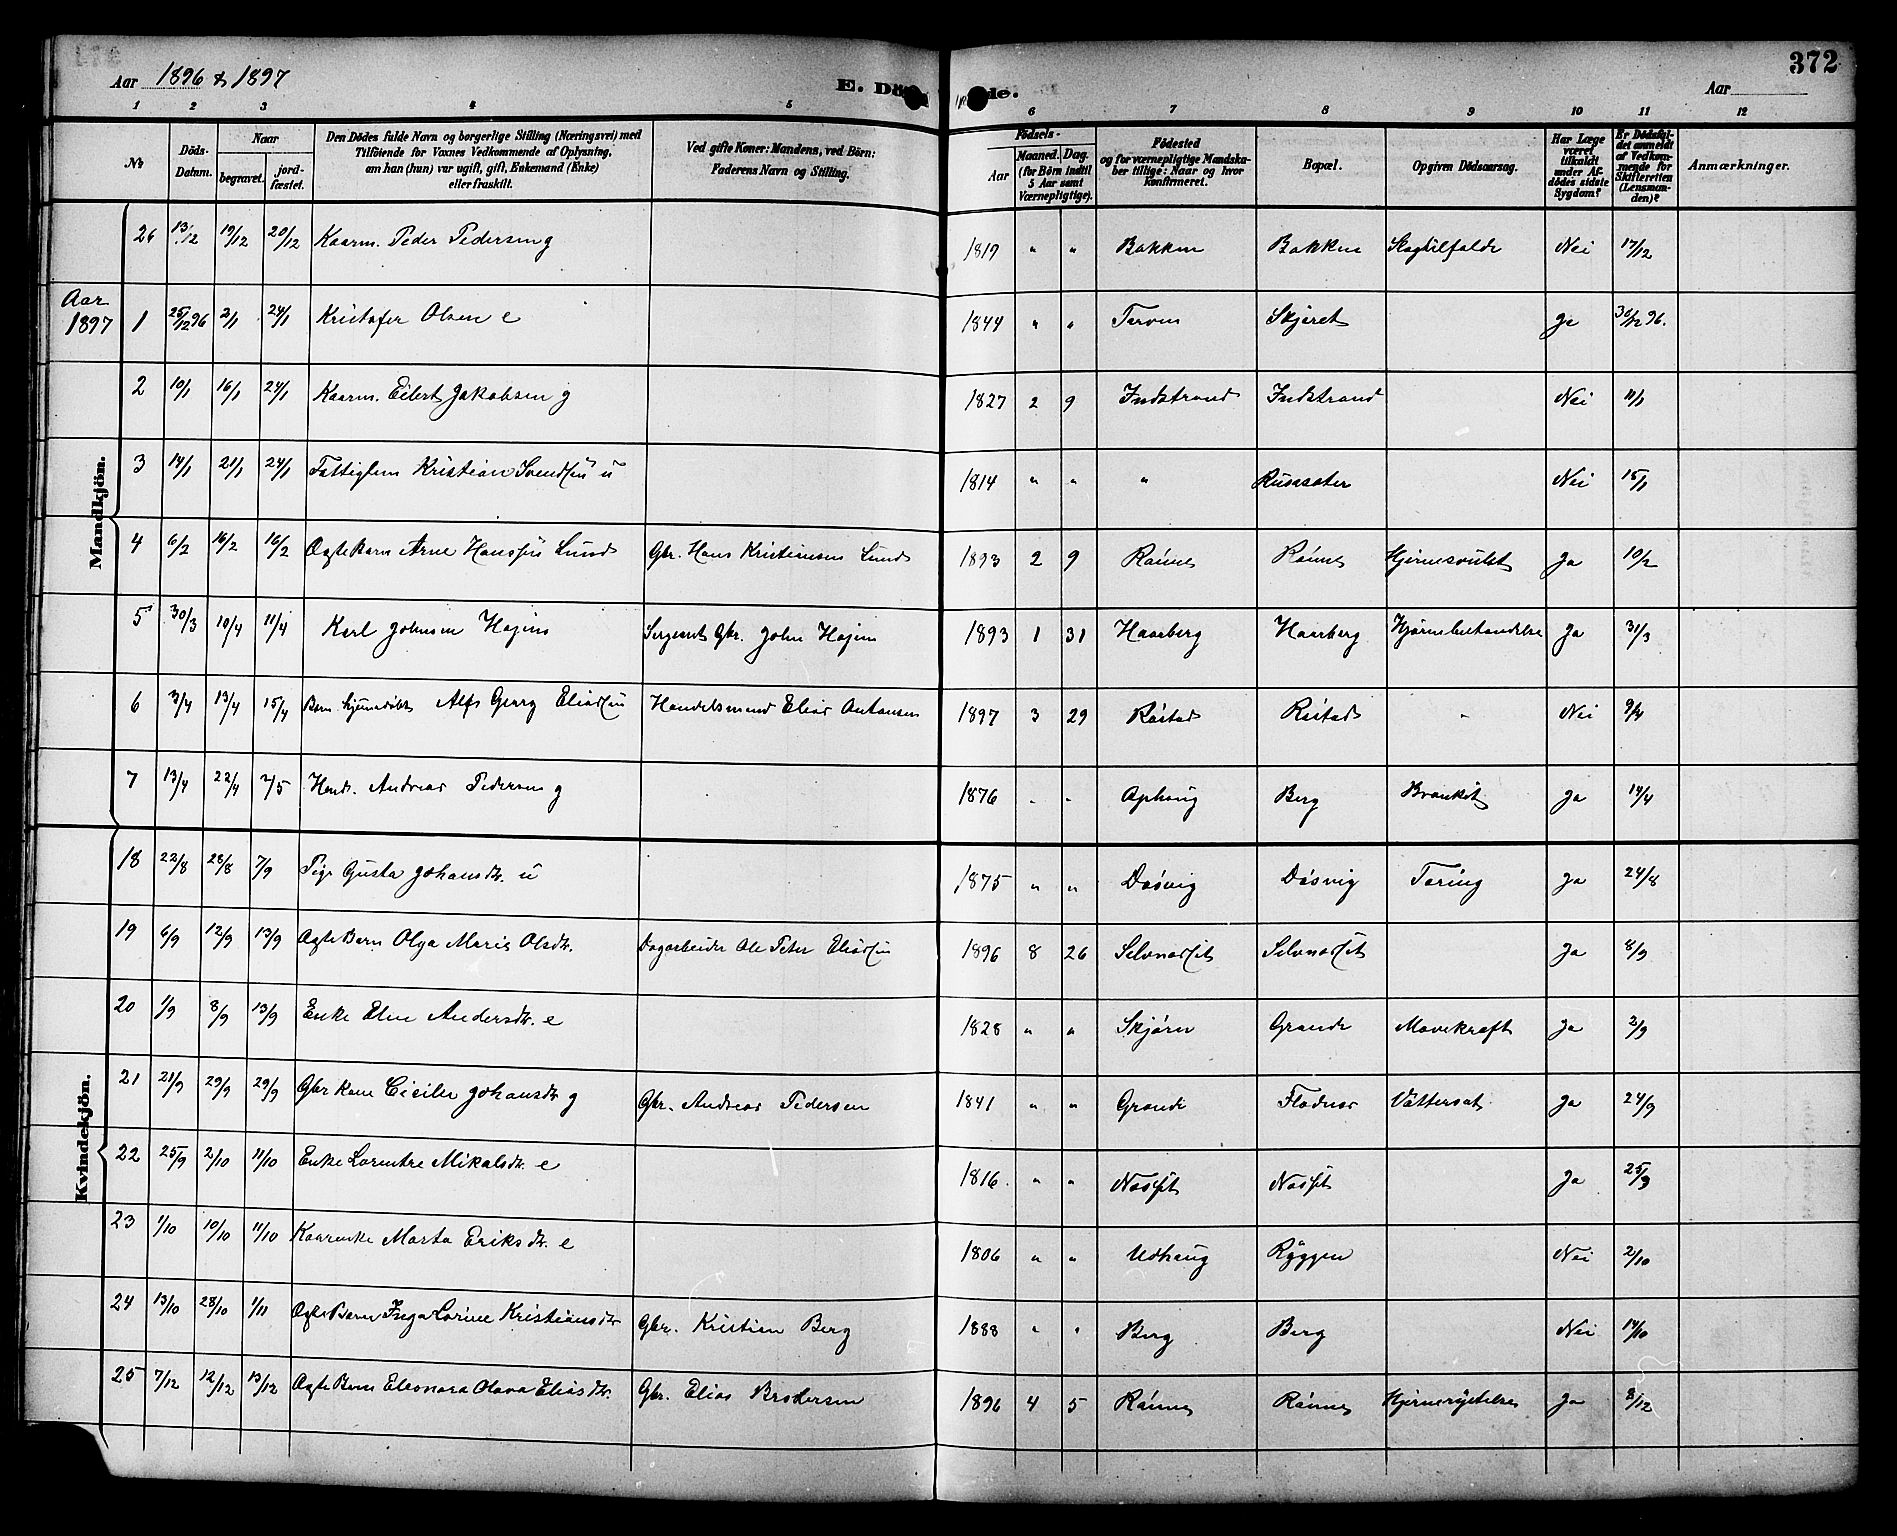 372
Aar 1896 & 1897
E. Dö de.
Aar
1 2 3 4 5 6 7 8 9 10 11 12
No
Döds-Datum.
Naar
begravet.
jord-fæstet.
Den Dödes fulde Navn og borgerlige Stilling (Næringsvei) med
Tilföiende for Voxnes Vedkommende af Oplysning,
om han (hun) var ugift, gift, Enkemand (Enke)
eller fraskilt.
Ved gifte Koner: Mandens, ved Börn:
Faderens Navn og Stilling.
Födsels-
Aar
Maaned. Dag.
(for Börn indtil
5 Aar samt
Værnepligtige).
Födested
og for værnepligtige Mandska-
ber tillige: Naar og hvor
Konfirmeret.
Bopæl.
Opgiven Dödsaarsag.
Har Læge
været
tilkaldt
under Af-
dödes sidste
Sygdom?
Er Dödsfal-
det anmeldt
af Vedkom-
mende for
Skifteretten
(Lensman-
den)?
Anmærkninger.
Mandkjön.
26 13/12 19/12 20/12 Kaarm. Peder Pedersen g 1819 " " Bakken Bakken Slagtilfælde Nei 17/12
Aar
1897 1 25/12 96 2/1 24/1 Kristofer Olsen e 1844 " " Tarven Skjæret Ja 30/12 96.
2 10/1 16/1 24/1 Kaarm. Eilert Jakobsen g 1827 2 9 Indstrand Indstrand Nei 11/1
3 14/1 21/1 24/1 Fattiglem Kristian Svendsen u 1814 " " " Rusaseter Nei 15/1
4 6/2 16/2 16/2 Ægte Barn Arne Hanssen Lund Gbr. Hans Kristiansen Lund 1893 2 9 Rønne Rønne Ja 10/2
5 30/3 10/4 11/4 Karl Johnsen Hojem Sergeant Gbr. John Hojem 1893 1 31 Haarberg Haarberg Hjernebetændelse Ja 31/3
6 3/4 13/4 15/4 Barn hjemedøbt Alf Georg Eliassen Handelsmand Elias Antonsen 1897 3 29 Røstad Røstad " Nei 9/4
7 13/4 22/4 2/5 Andreas Pedersen g 1876 " " Ophaug Berg Bronkit Ja 14/4
Kvindekjön.
18 22/8 28/8 7/9 Pige Gusta Johansdtr. u 1875 " " Døsvig Døsvig Tæring Ja 24/8
19 6/9 12/9 13/9 Ægte Barn Olga Marie Olsdtr. Dagarbeider Ole Peter Eliassen 1896 8 26 Selvnæsset Selvnæsset Ja 8/9
20 1/9 8/9 13/9 Enke Eline Andersdtr. e 1828 " " Skjørn Grande Mavekræft Ja 2/9
21 21/9 29/9 29/9 Gbr kone Cicilie Johansdtr g Gbr. Andreas Pedersen 1841 " " Grande Flatnes Vattersot Ja 24/9
22 25/9 2/10 11/10 Enke Lorentze Mikalsdtr. e 1816. " " Næsset Næsset Ja 25/9
23 1/10 10/10 11/10 Kaarenke Marta Eriksdtr. e 1806 " " Udhaug Ryggen Nei 2/10
24 13/10 28/10 1/11 Ægte Barn Inga Lorine Kristiansdtr Gbr. Kristian Berg 1888 " " Berg Berg Nei 14/10
25 7/12 12/12 13/12 Ægte Barn Eleonora Olava Eliasdtr. Gbr. Elias Brodersen 1896 4 5 Rønne Rønne Hjernerystelse Ja 8/12